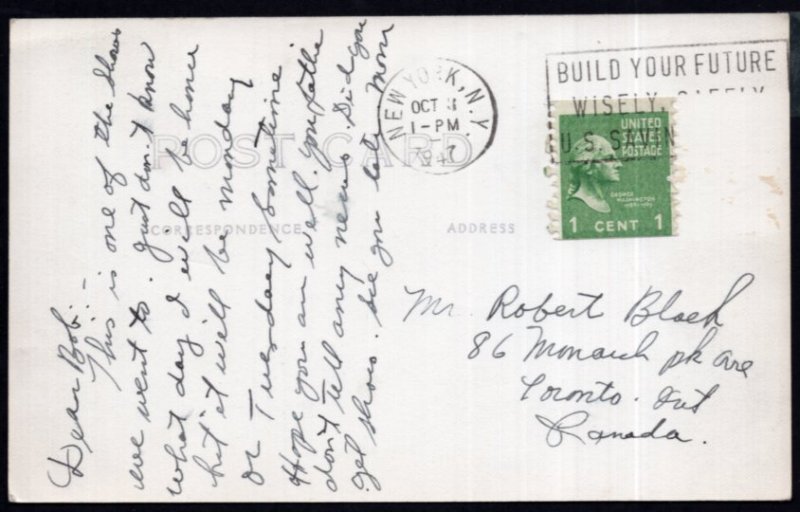 Dear Bob:-
This is one of the shows
we went to. just don't know
what day I will be home
but it will be monday
or Tuesday sometime.
Hope you are well. you father
don't tell any news. Did you
get shoes. See you late Mom
POST CARD
CORRESPONDENCE
ADDRESS
NEW YORK, N.Y.
OCT
1-PM
1947
BUILD YOUR FUTURE
WISELY, SAFELY
U.S.
UNITED
STATES
POSTAGE
GEORGE
WASHINGTON
1 CENT 1
Mr. Robert Black
86 Monarch pk ave
Toronto. Ont
Canada.